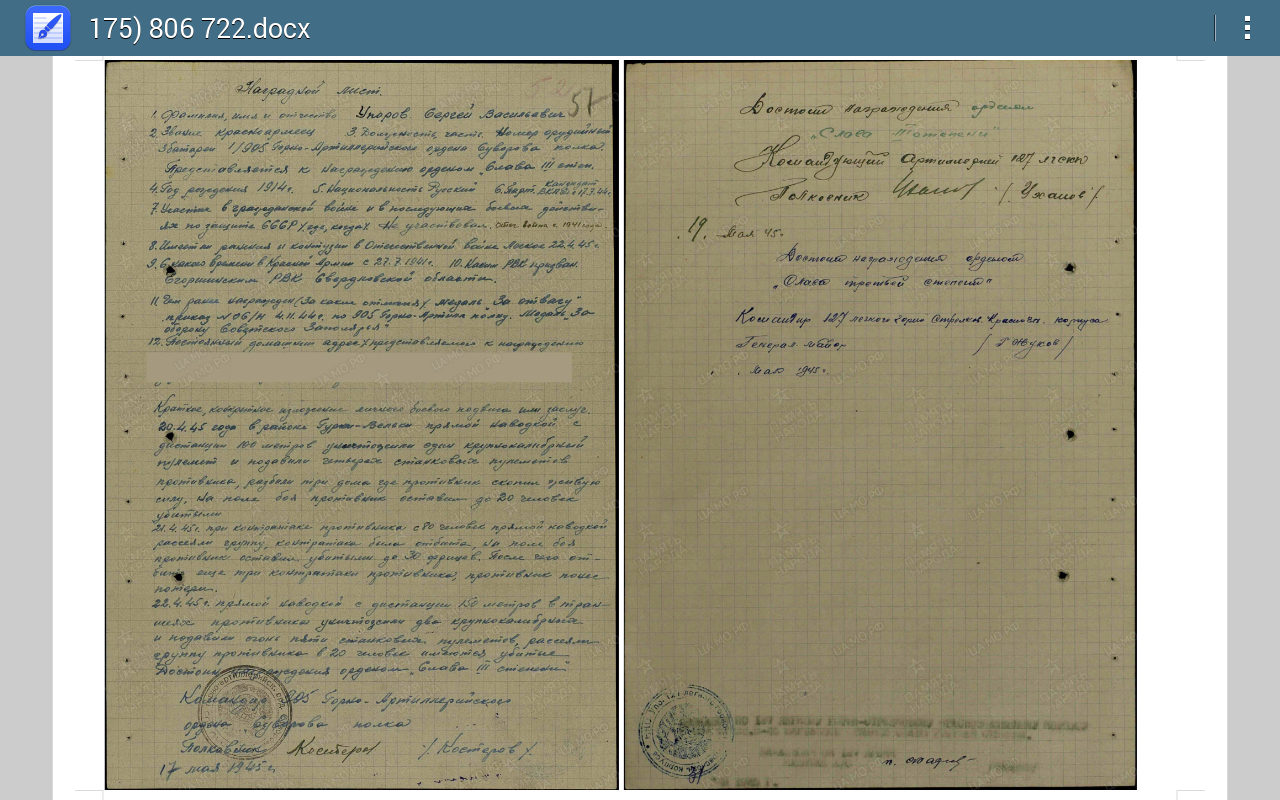 175) 806 722.docx
Наградной лист.
57
1. Фамилия, имя и отчество Упоров Сергей Васильевич
2 Звание красноармеец 3. Должность, часть. Номер орудийный
3 батареи 1/905 Горно-Артиллерийского ордена Суворова полка.
Представляется к награждению орденом „Слава III степ.
4. Год рождения 1914г. 5. Национальность Русский 6. Парт. кандидат
ВКП(б) с 1944
7. Участие в гражданской войне и в последующих боевых действи-
ях по защите СССР (где, когда) Не участвовал. Отеч. война с 1941 года.
8. Имеет ли ранения и контузии в Отечественной войне Легкое 22.4.45г
9. С какого времени в Красной Армии с 27.7.1941г. 10. Каким РВК призван.
Егоршинским РВК Свердловской области.
11. Чем ранее награжден (За какие отличия) Медаль „За отвагу"
приказ N 06/Н 4.11.44г. по 905 Горно-Артил полку. Медаль „За
оборону Советского Заполярья"
12. Постоянный домашний адрес) представляемого к награждению
Краткое, конкретное изложение личного боевого подвига или заслуг.
20.4.45 года в районе прямой наводкой с
дистанции 100 метров уничтожили один крупнокалиберный
пулемет и подавили четырех станковых пулеметов
противника, разбили три дома где противник скопил живую
силу. На поле боя противник оставил до 20 человек
убитыми
21.4.45г. при контратаке противника с 80 человек прямой наводкой
рассеяли группу, контратака была отбита, на поле боя
противник оставил убитыми до 30 фрицев. После чего от-
биты еще три контратаки противника, противник понес
потери.
22.4.45г. прямой наводкой с дистанции 150 метров в тран-
шеях противника уничтожили два крупнокалиберных
и подавили огонь пяти станковых пулеметов, рассеяли
группу противника в 20 человек имеются убитые
Достоин награждения орденом „Слава III степени"
Командир 905 Горно-Артиллерийского
ордена Суворова полка
Полковник /Костеров/
17 мая 1945г
Достоин награждения орденом
„Слава III степени"
Командующий Артиллерией 127 лгскк
Полковник /Ухалов/
19. Мая 45г.
Достоин награждения орденом
„Слава третьей степени"
Командир 127 легкого горно Стрелков. Краснозн. корпуса
Генерал майор / Г Жуков /
Мая 1945г.